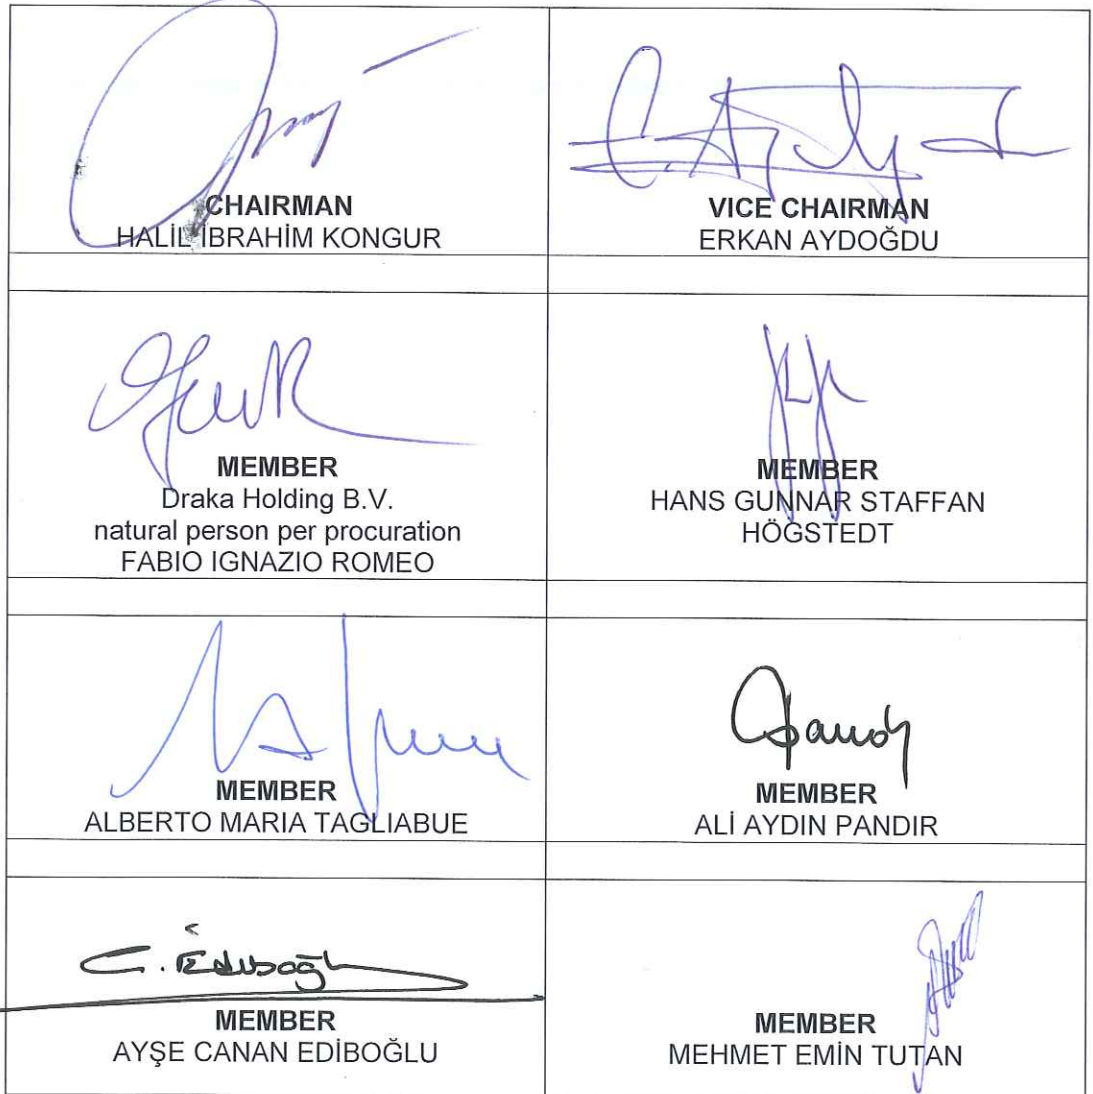 CHAIRMAN
HALİL İBRAHİM KONGUR
VICE CHAIRMAN
ERKAN AYDOĞDU
MEMBER
Draka Holding B.V.
natural person per procuration
FABIO IGNAZIO ROMEO
MEMBER
HANS GUNNAR STAFFAN
HÖGSTEDT
MEMBER
ALBERTO MARIA TAGLIABUE
MEMBER
ALİ AYDIN PANDIR
C. Ediboğlu
MEMBER
AYŞE CANAN EDİBOĞLU
MEMBER
MEHMET EMİN TUTAN